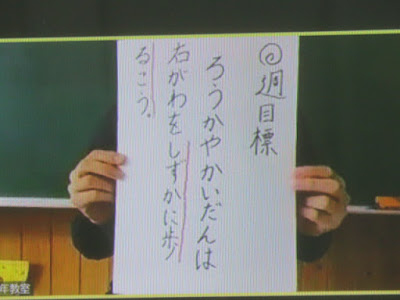 ◎週目標
ろうかやかいだんは
右がわをしずかに歩
るこう。
年教室